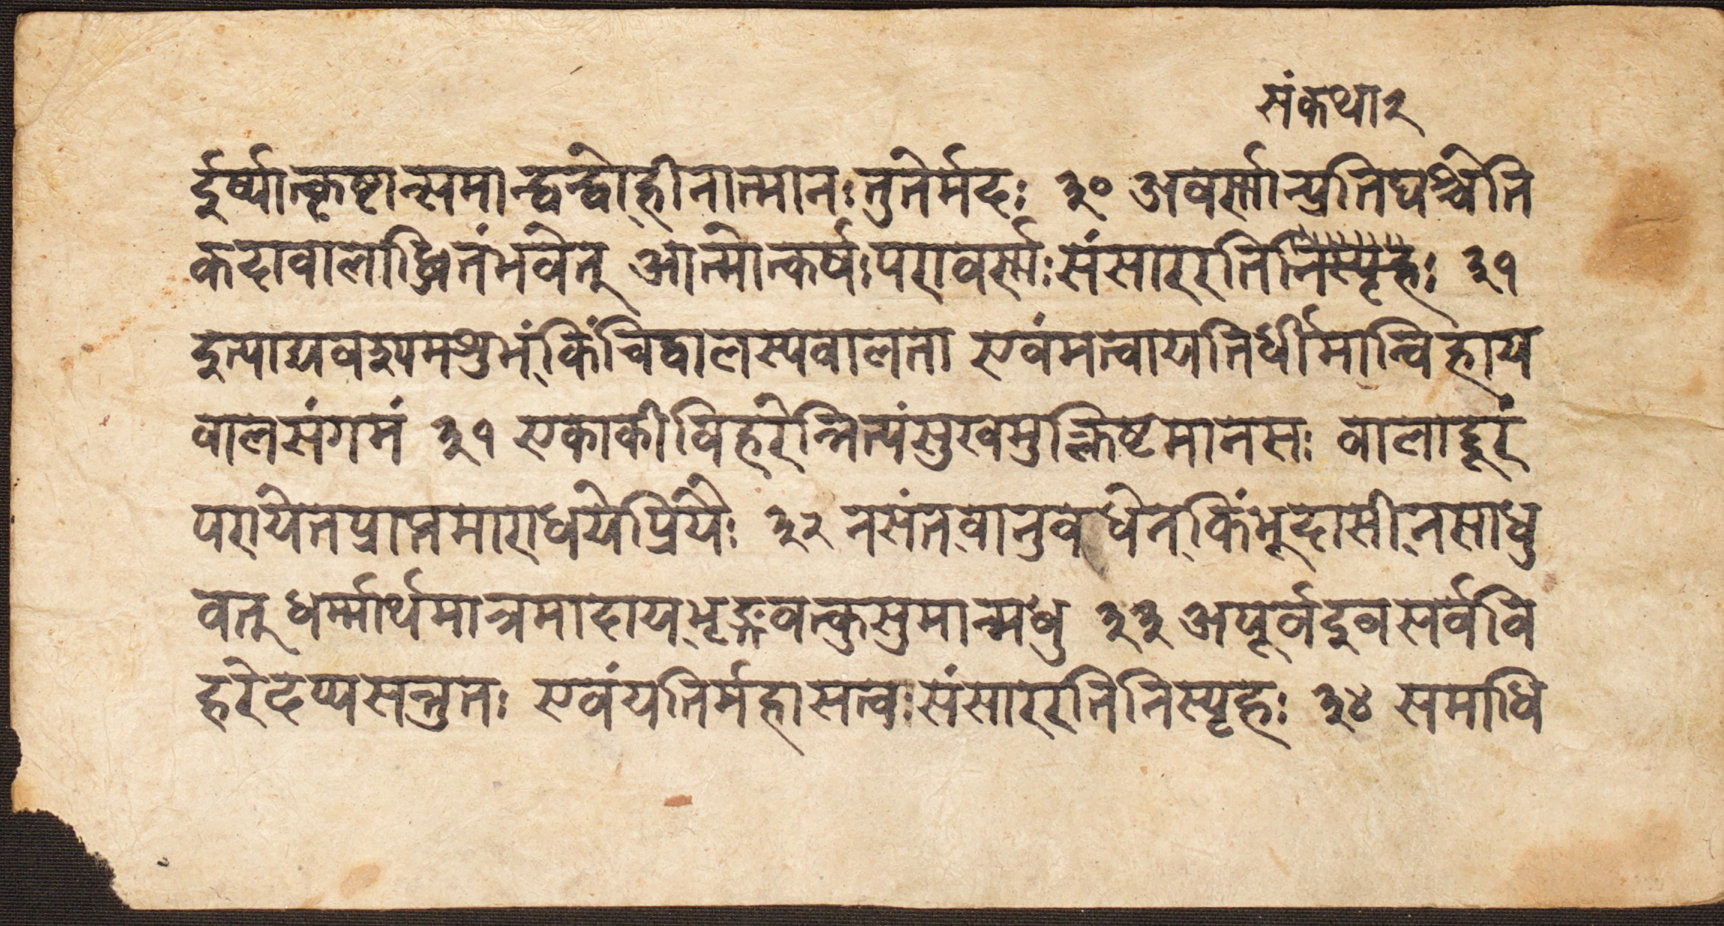 संकथा२
र्दुर्ष्यात्कृष्टान्समान्द्वन्द्वोहीनात्मानःतुतेर्मदः ३० अवर्स्मान्प्रतिघश्चेति
कदावालोद्धितंभवेत् आत्मोत्कर्षःपरावर्स्मःसंसाररतिनिस्पृहः ३१
दुत्याद्यवश्यमशुभंकिंचिद्वालस्यवालता एवंमत्वायतिर्धीमान्विहाय
वालसंगमं ३१ एकाकीविहरेन्नित्यंसुखमुक्लिष्टमानसः वालाद्दूरं
परायेतप्राप्तमाराधयेप्रियैः ३२ नसंतवानुवधेन् किंभूदासीनसाधु
वत् धर्म्मार्थमात्रमादायभृङ्गवत्कुसुमान्मधु ३३ अपूर्वदुवसर्ववि
हरेदप्यसन्तुतः एवंयतिर्महासत्वःसंसाररतिनिस्पृहः ३४ समाधि